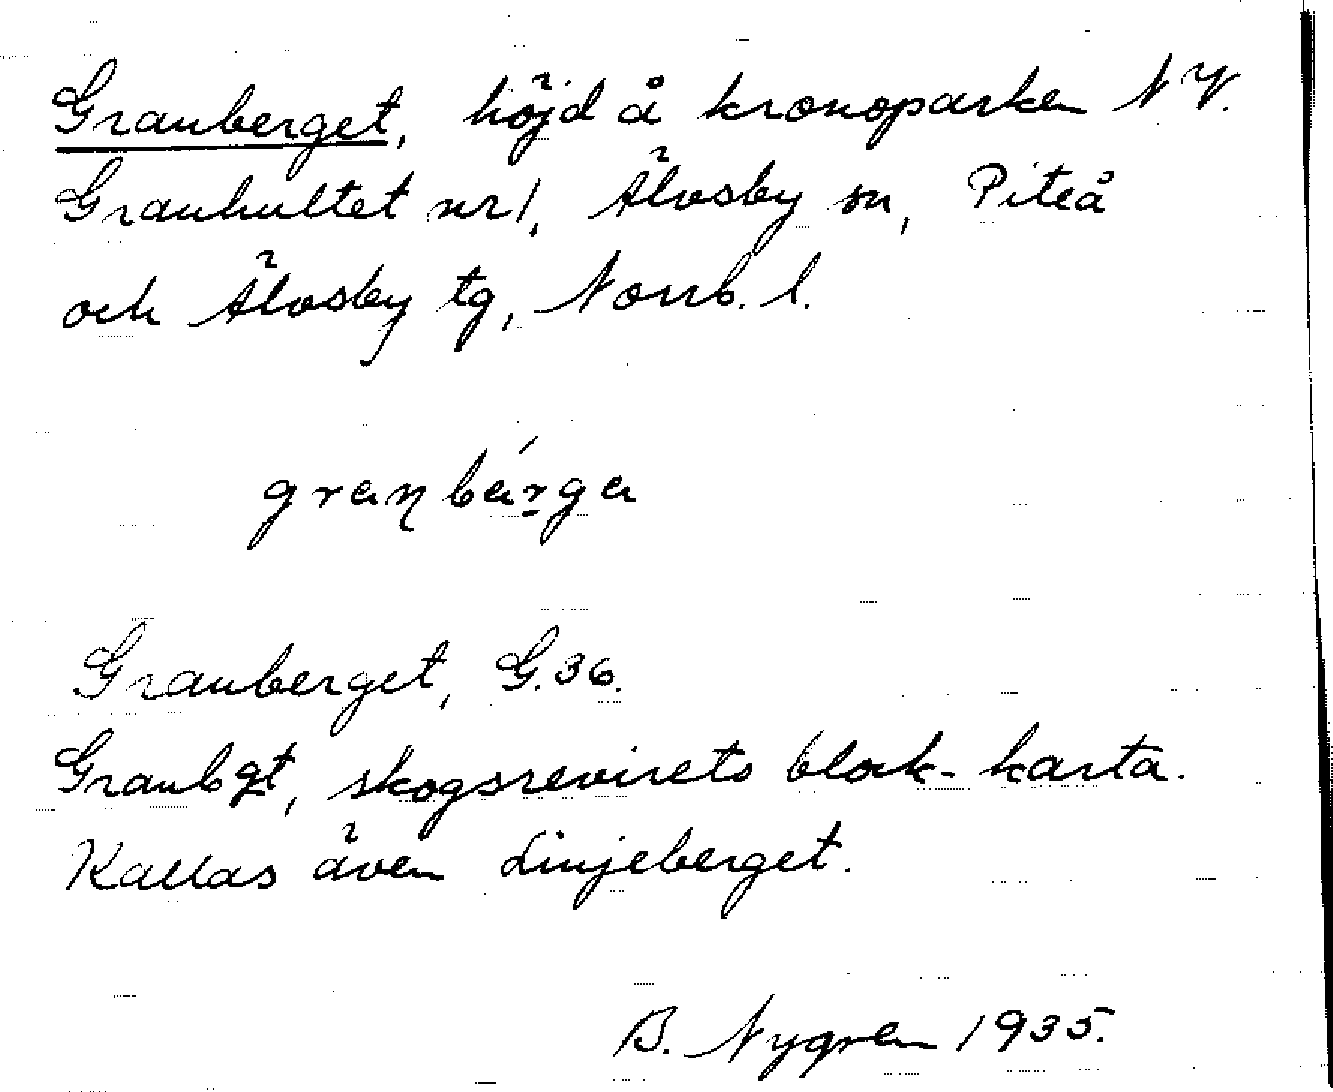 Granberget, höjd å kronoparken N V.
Granhultet nr 1, Älvsby sn, Piteå
och Älvsby tg, Norrb. l.
granbärga
Granberget, G.36.
Granbgt, skogsrevirets block-karta.
Kallas även Linjeberget.
B. Nygren 1935.